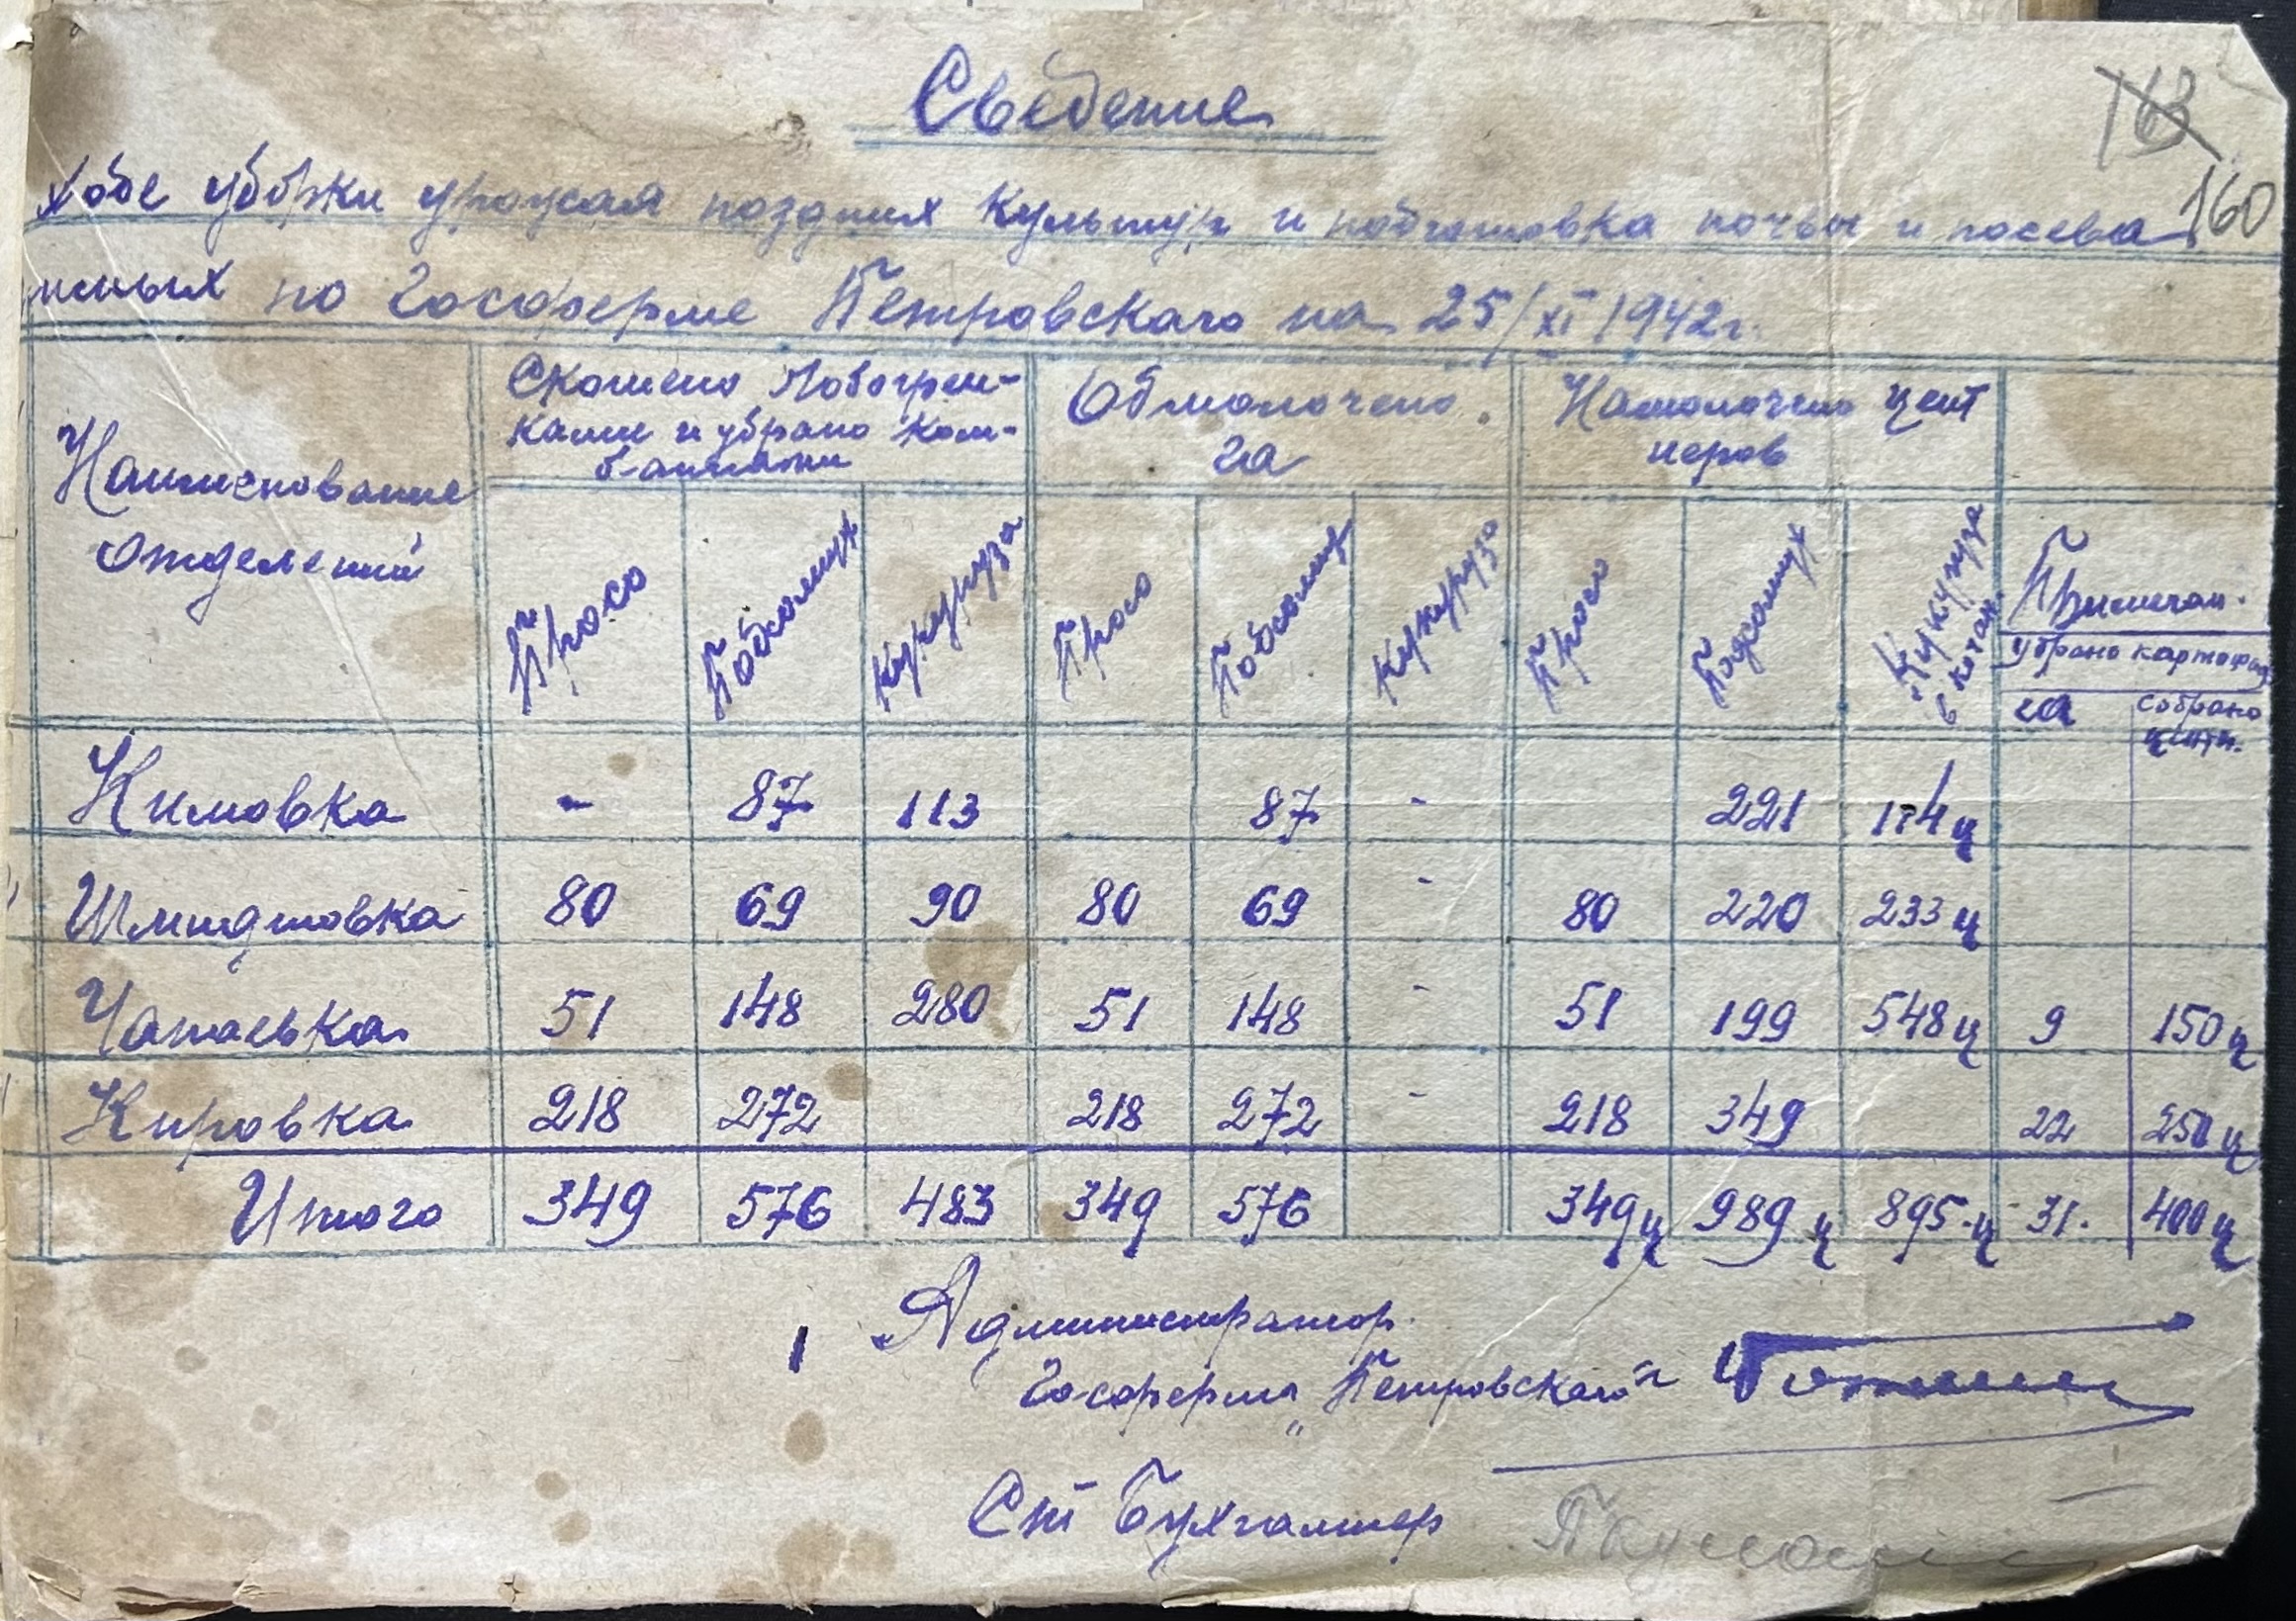 Сведение
163
160
ходе уборки урожая поздних культур и подготовка почвы и посева
имых по Госферме Петровского на 25/XI 1942г.
Наименование отделений
Скошено Лобогрейками и убрано комбайнами
Обмолочено га
Намолочено центнеров
Примечан.
Просо Подсолнух Кукуруза Просо Подсолнух Кукуруза Просо Подсолнух Кукуруза в кочан.
убрано картофеля
га собрано центн.
Климовка - 87 113 87 - 221 114 ц
Шмидтовка 80 69 90 80 69 - 80 220 233 ц
Чапаевка 51 148 280 51 148 - 51 199 548 ц 9 150 ц
Кировка 218 272 218 272 - 218 349 22 250 ц
Итого 349 576 483 349 576 349 ц 989 ц 895 ц 31. 400 ц
Администратор
Госфермы „Петровского"
Ст Бухгалтер